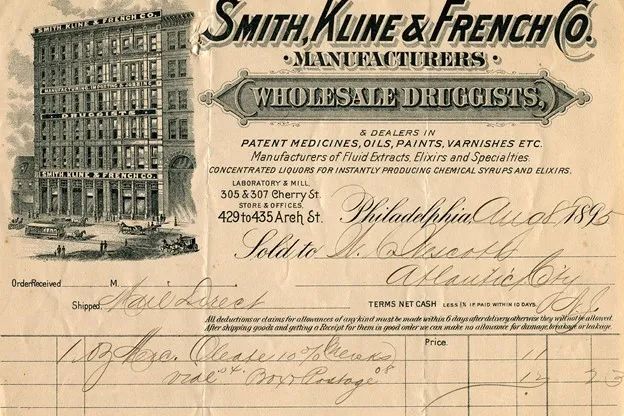 SMITH, KLINE & FRENCH CO.
SMITH, KLINE & FRENCH CO.
MANUFACTURERS
MANUFACTURING, IMPORTING & JOBBING
WHOLESALE DRUGGISTS,
DRUGGISTS
& DEALERS IN
PATENT MEDICINES, OILS, PAINTS, VARNISHES ETC.
Manufacturers of Fluid Extracts, Elixirs and Specialties.
CONCENTRATED LIQUORS FOR INSTANTLY PRODUCING CHEMICAL SYRUPS AND ELIXIRS.
SMITH KLINE & FRENCH CO.
LABORATORY & MILL,
305 & 307 Cherry St.
STORE & OFFICES,
429 to 435 Arch St.
Philadelphia, Aug 8 1895
Sold to W.
Atlantic City
N.J.
Order Received M.
Shipped Mail Direct
TERMS NET CASH LESS 1% IF PAID WITHIN 10 DAYS.
All deductions or claims for allowances of any kind must be made within 6 days after delivery otherwise they will not be allowed.
After shipping goods and getting a Receipt for them in good order we can make no allowance for damage, breakage or leakage.
Price.
1 oz Merc. Oleate 10% 11
vial 04 Box & Postage 08 12 23